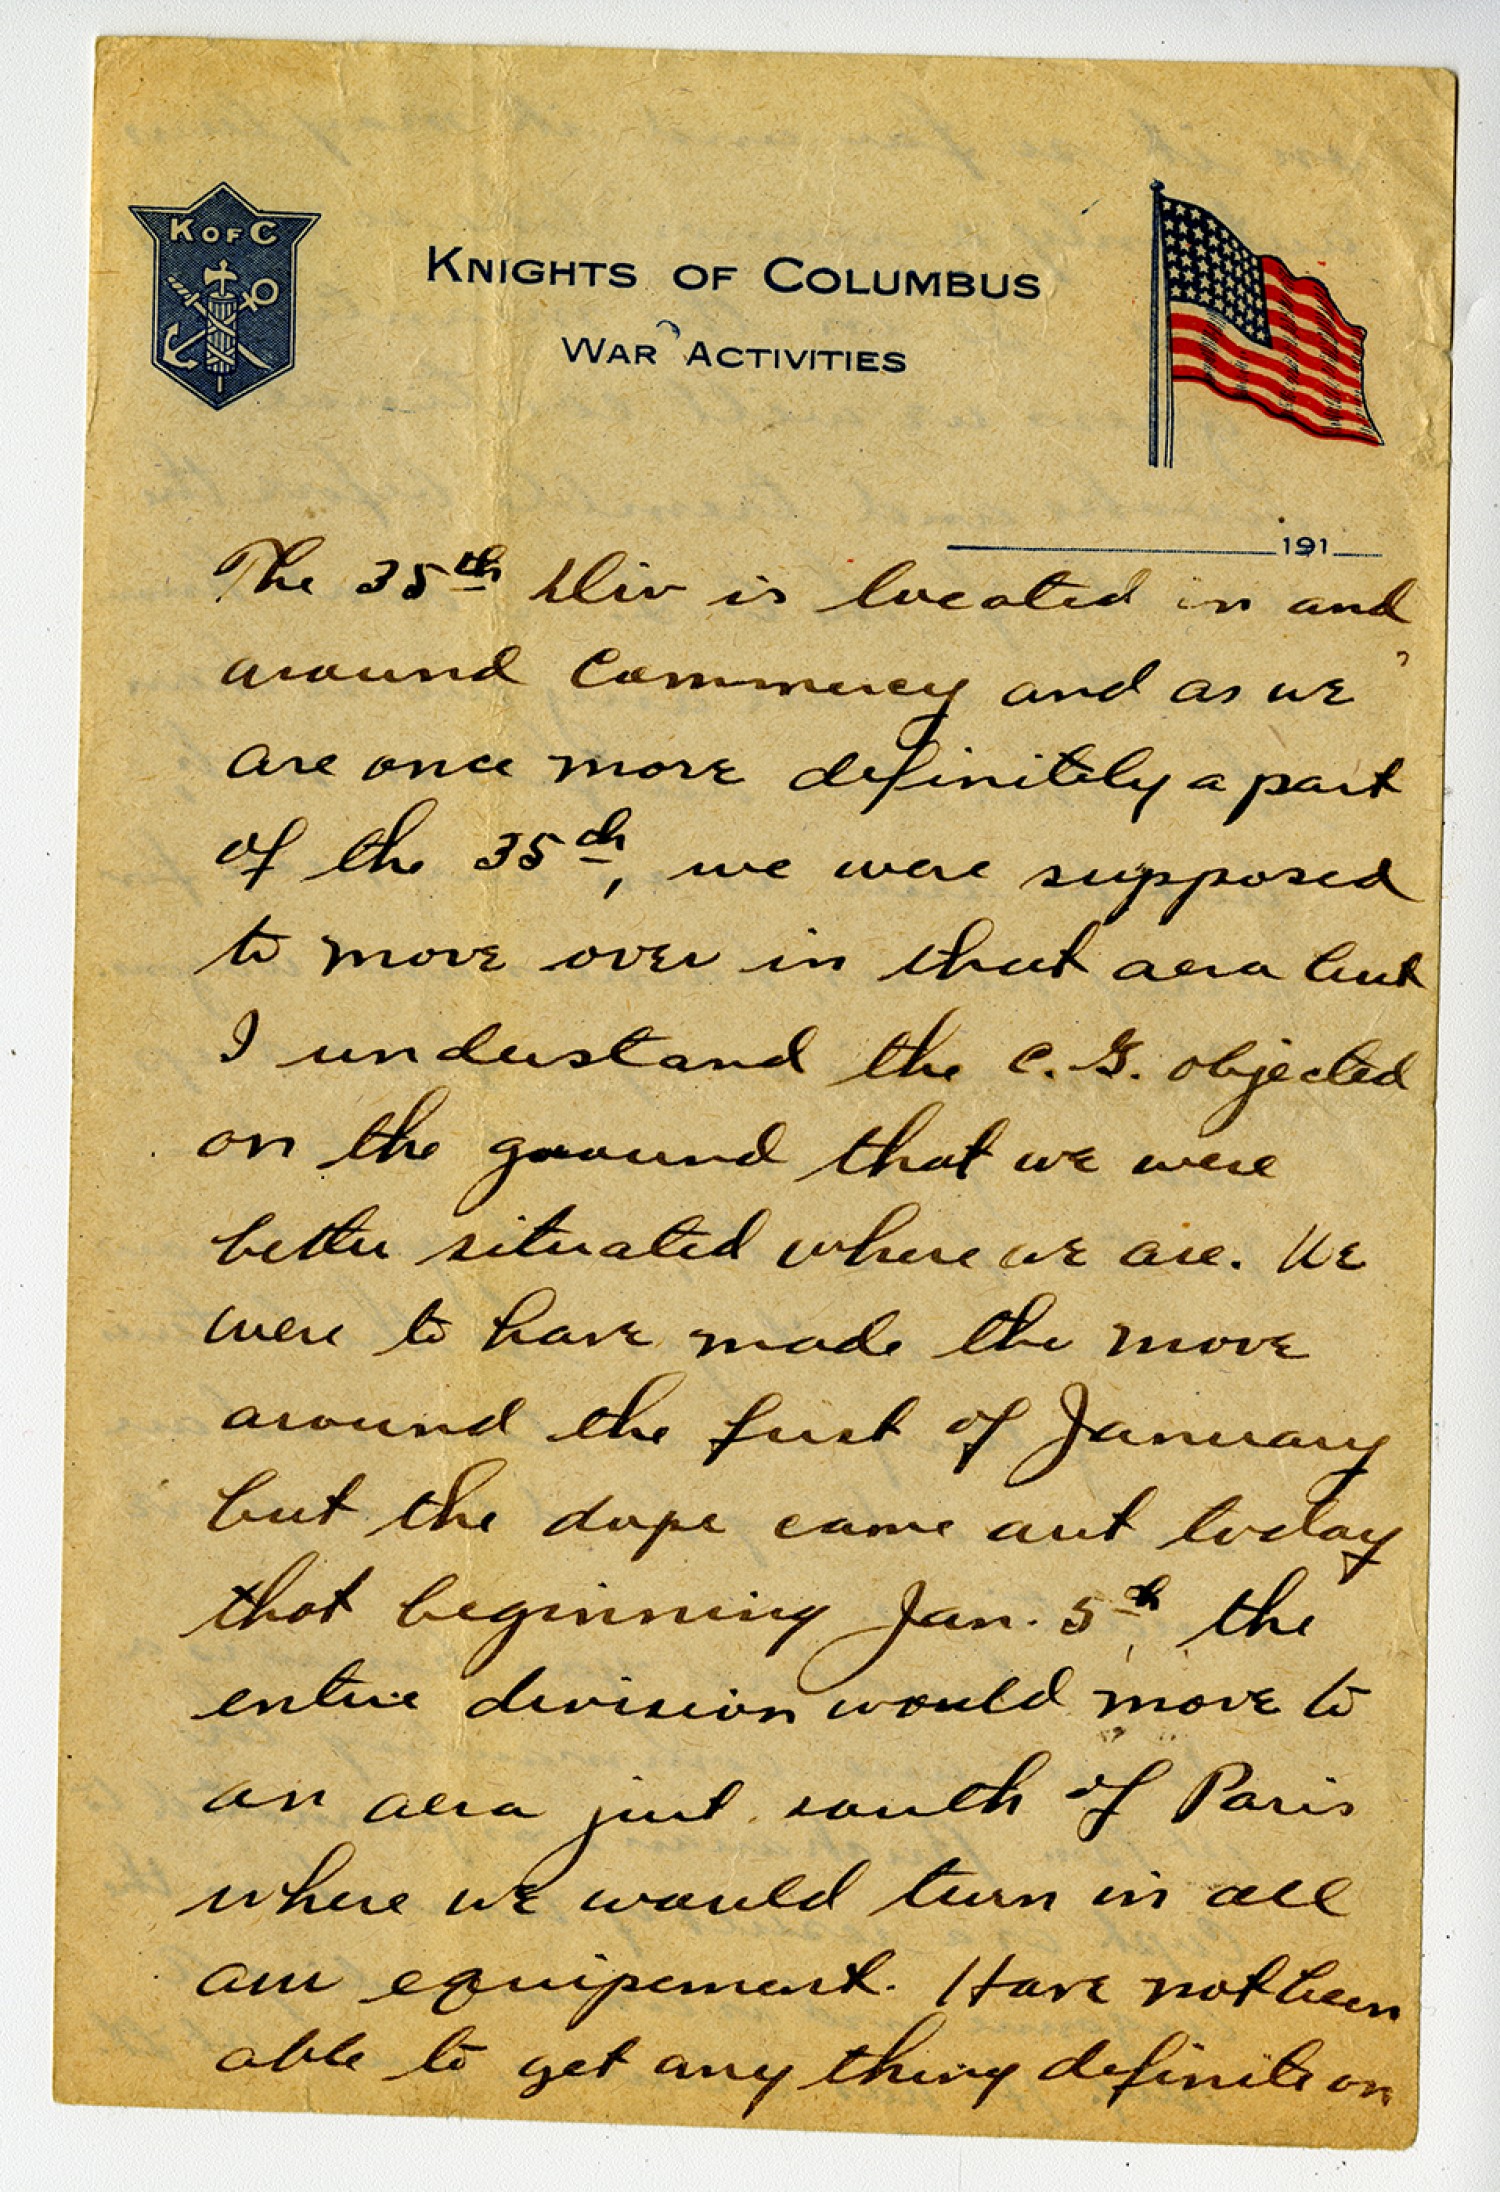 K OF C
KNIGHTS OF COLUMBUS
WAR ACTIVITIES
191
The 35th Div is located in and
around Commercy and as we
are once more definitely a part
of the 35th, we were supposed
to move over in that area but
I understand the C.G. objected
on the ground that we were
better situated where we are. We
were to have made the move
around the first of January
but the dope came out today
that beginning Jan. 5th, the
entire division would move to
an area just south of Paris
where we would turn in all
our equipement. Have not been
able to get any thing definite on